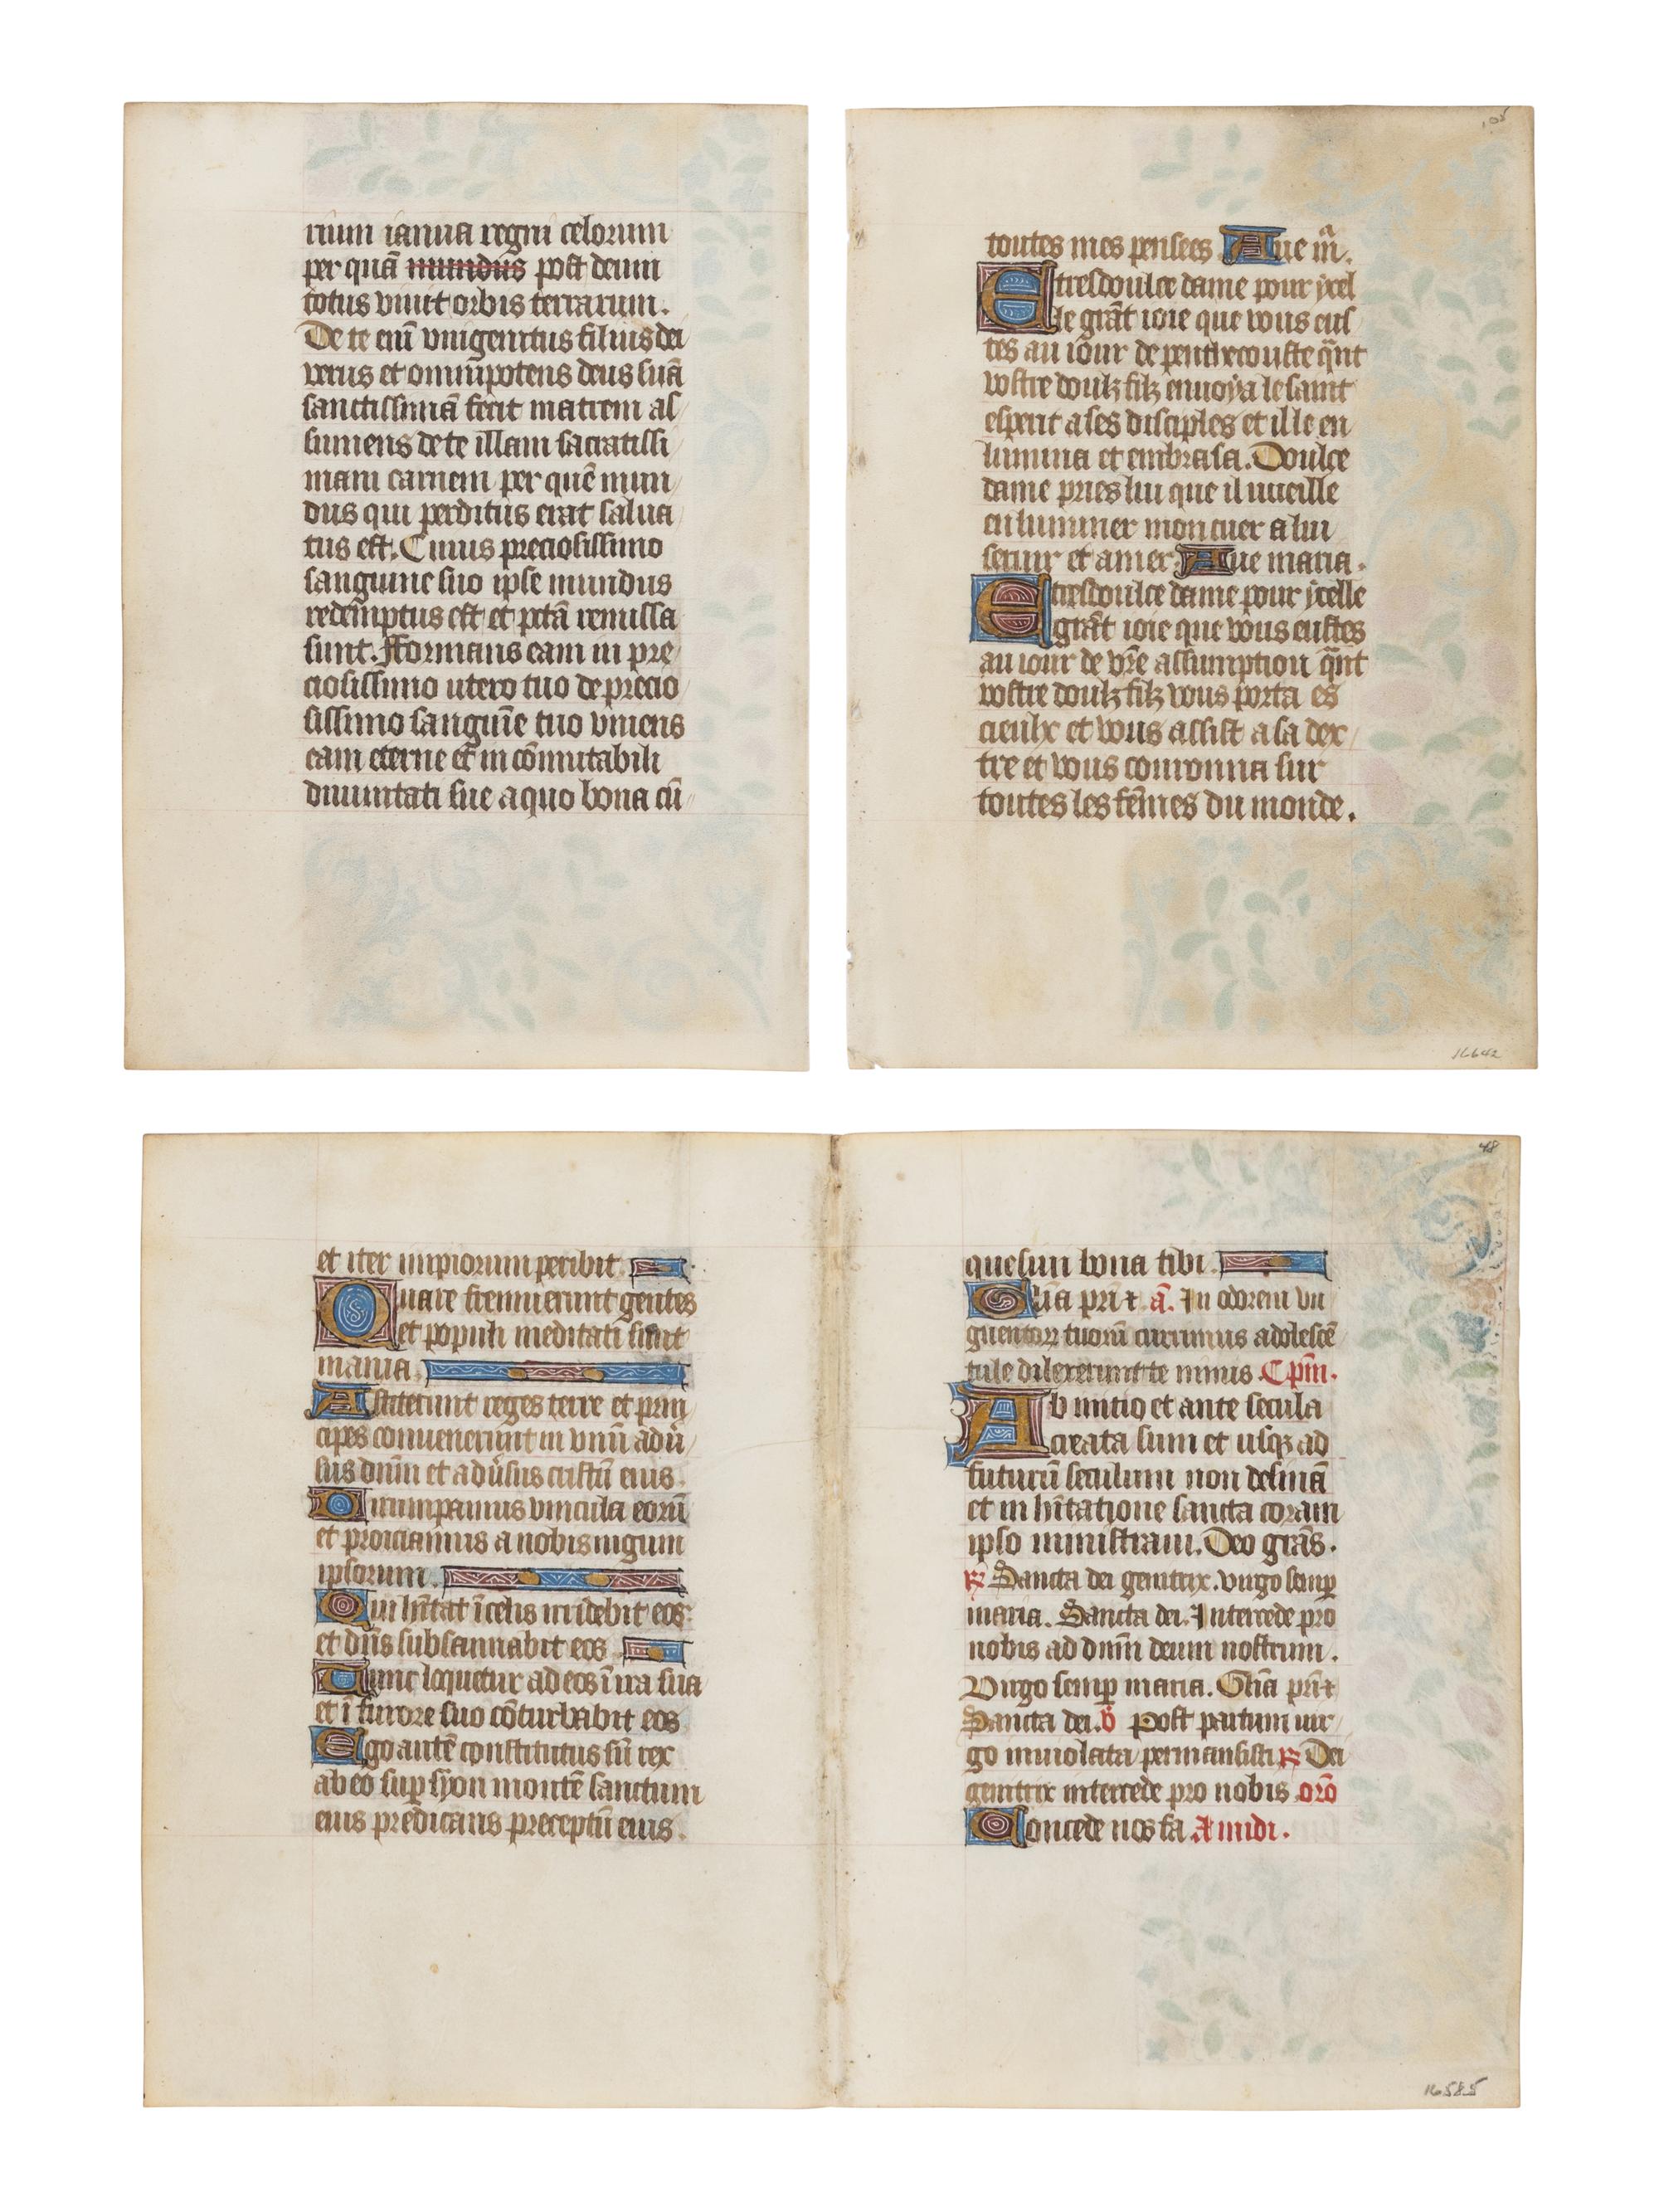 rium ianua regni celorum
per quā mundus post deum
totus viuit orbis terrarum.
De te eni᷈ vnigenitus filius dei
verus et omnipotens deus suā
sanctissimā fecit matrem as
sumens de te illam sacratissi
mam carnem per quē mun
dus qui perditus erat salua
tus est. Cuius preciosissimo
sanguine suo ipse mundus
redemptus est et pctā remissa
sunt. Fformans eam in pre
ciosissimo utero tuo de precio
sissimo sanguīe tuo vniens
eam eterne et in cōmutabili
diuinitati sue a quo bona cū
105
toutes mes pensees. Aue m̄.
E tresdoulce dame pour ycel
le grāt ioie que vous eus
tes au iour de penthecouste q̄nt
vostre doulz filz enuoya le saint
esperit a ses disciples et ille en
lumina et embrasa. Doulce
dame pries lui que il uueille
enluminer mon cuer a lui
seruir et amer. Aue maria.
E tresdoulce dame pour ycelle
grāt ioie que vous eustes
au iour de vr̄e assumption q̄nt
vostre doulz filz vous porta es
cieulx et vous assist a sa dex
tre et vous couronna sur
toutes les fēmes du monde.
16642
et iter impiorum peribit.
Quare fremuerunt gentes
et populi meditati sunt
inania.
Astiterunt reges terre et prin
cipes conuenerunt in vnū adū
sus dn̄m et adūsus cristū eius.
Dirumpamus vincula eorū
et proiciamus a nobis iugum
ipsorum.
Qui hītat ī celis irridebit eos:
et dn̄s subsannabit eos.
Tunc loquetur ad eos ī ira sua
et ī furore suo cōturbabit eos
Ego autē constitutus sū rex
ab eo suꝑ syon montē sanctum
eius predicans preceptū eius.
48
que sun bona tibi.
Gl̄ia pr̄i ⁊. a᷈. In odorem vn
guentoꝝ tuorū currimus adolescē
tule dilexerunt te nimis. C pīm.
Ab initio et ante secula
creata sum et usqꝫ ad
futurū seculum non desinā
et in hītatione sancta coram
ipso ministraui. Deo grās.
℟ Sancta dei genitrix. virgo semꝑ
maria. Sancta dei. Intercede pro
nobis ad dn̄m deum nostrum.
Virgo semꝑ maria. Gl̄ia pr̄i ⁊
Sancta dei. ℣ Post partum vir
go inuiolata permansisti ℟ Dei
genitrix intercede pro nobis. orō
Concede nos fa. A midi.
16585